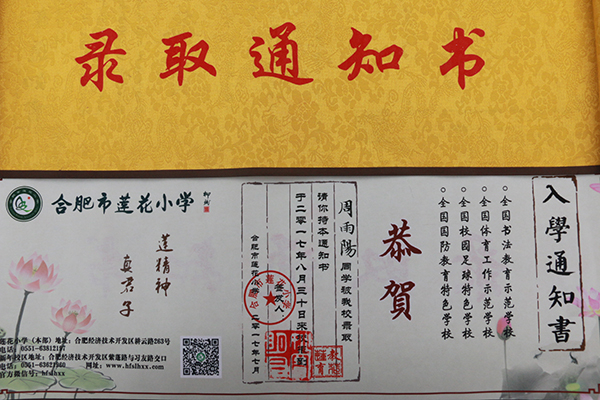 录取通知书
入學通知書
○全国书法教育示范学校
○全国体育工作示范学校
○全国校园足球特色学校
○全国国防教育特色学校
恭賀
周雨陽 同学被我校录取
请你持本通知书
于二零一七年八月三十日来校报
合肥市莲花小学
二零一七年七月
签发人
合肥市莲花小学
莲精神
真君子
莲花小学（本部）地址：合肥经济技术开发区耕云路263号
电话：0551-63812197
校区地址：合肥经济技术开发区紫蓬路与习友路交口
电话：0551-63621960
网址：www.hfslhxx.com
官方微信号：hfslhxx